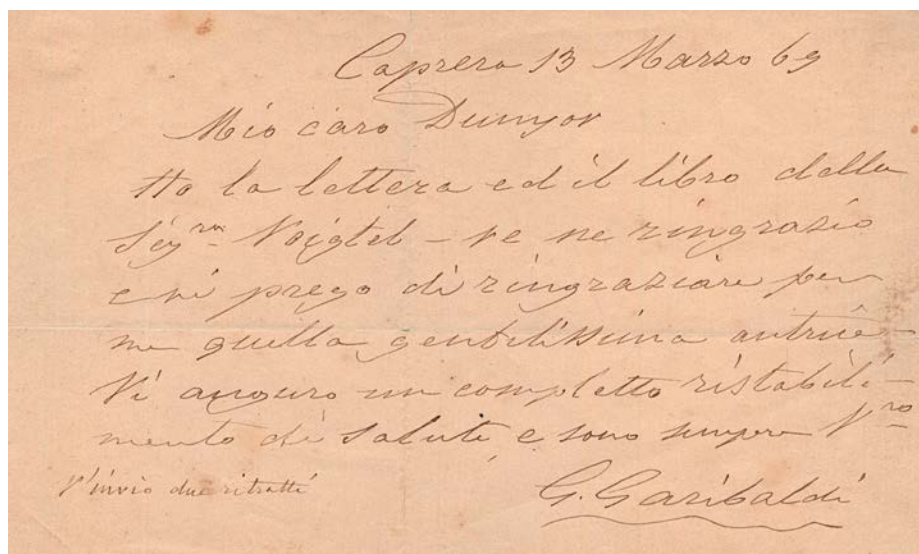 Caprera 13 Marzo 69
Mio caro Dunyov
Ho la lettera ed il libro della
Sigra Voigtel – ve ne ringrazio
e vi prego di ringraziare per
me quella gentilissima autrice
Vi auguro un completto ristabili-
mento di salute, e sono sempre Vro
V'invio due ritratti
G. Garibaldi